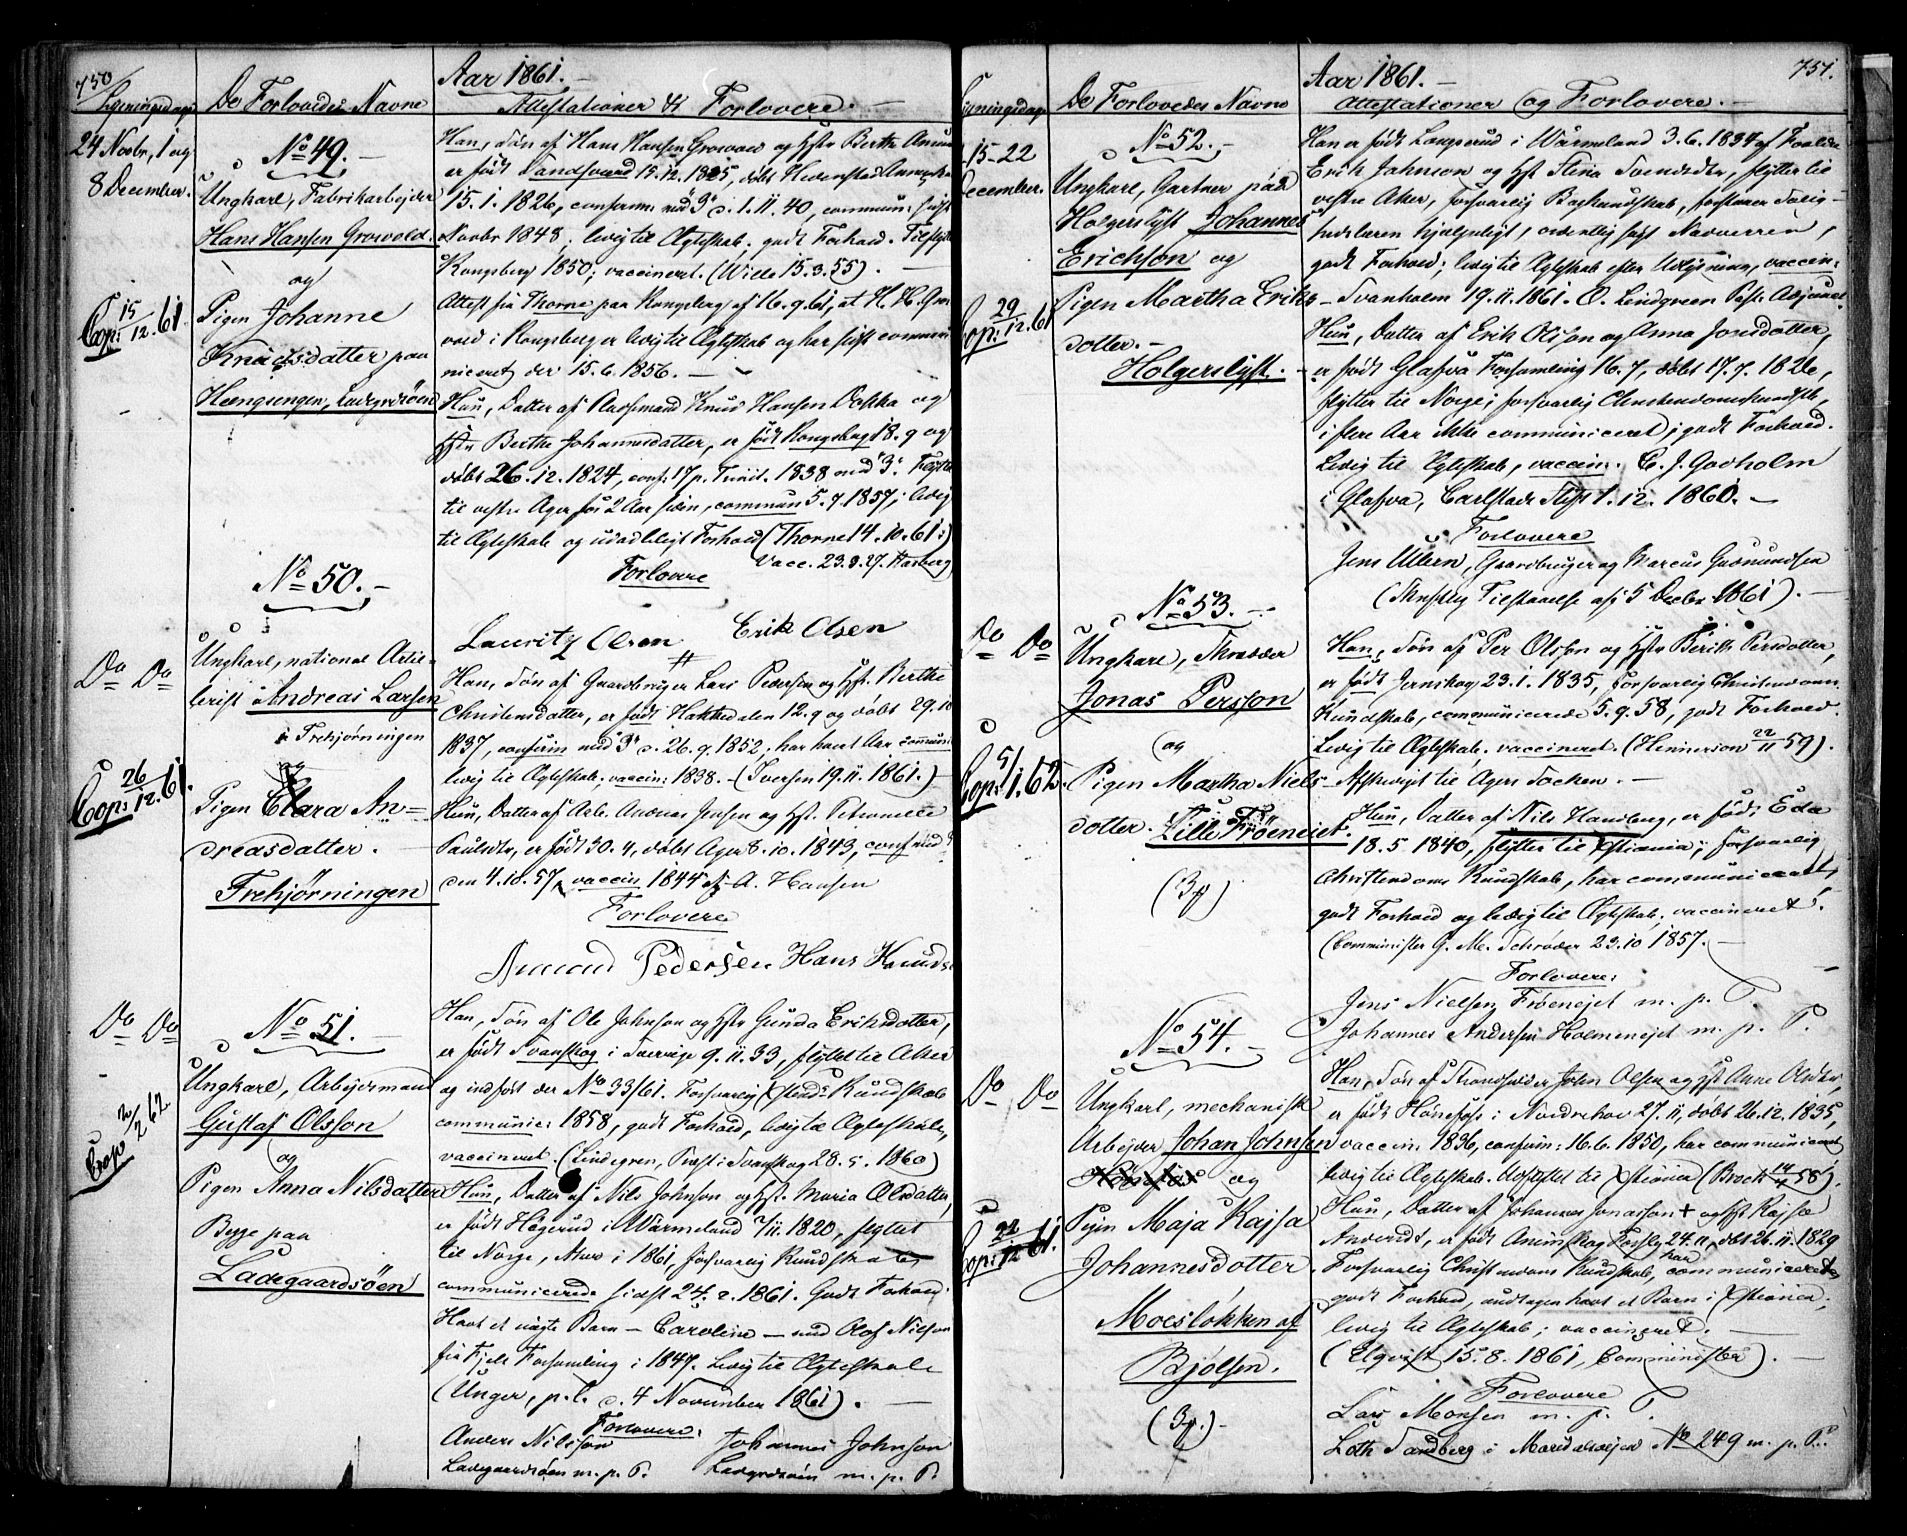 750
Aar 1861. —
Lysningsdage
De Forlovedes Navne
Attestationer & Forlovere. —
24 Novbr, 1 og
8 December.
No 49. —
Ungkarl, Fabrikarbejder
Hans Hansen Grosvold
og
Pigen Johanne
Knudsdatter paa
Heengsengen, Ladegrdsöen
Cop: 15/12. 61.
Han, Søn af Hans Hansen Grosvold og Hstr Berthe
er født Sandsværd 15.12. 1825, døbt Hedenstad
15. 1. 1826, conferm: med 3 d. 1. 11. 40, commun: sidst
Novbr 1848, ledig til Ægteskab, godt Forhold. Tilflyttet
Kongsberg 1850; vaccineret. (Wille 15. 3. 55). —
Attest fra Thorne paa Kongsberg af 16. 9. 61, at H. H. Gros
vold i Kongsberg er ledig til Ægteskab og har sidst commu
niceret der 15. 6. 1856. —
Hun, Datter af Knud Hansen Dokka og
Hstr Berthe Johannesdatter, er født Kongsberg 18. 9 og
døbt 26. 12. 1824, conf: 17 p. Trinit. 1838 med 3.
til vestre Ager for 2 Aar siden, commun 5. 7. 1857, ledig
til Ægteskab og udadleligt Forhold (Thorne 14. 10. 61.)
Vacc. 23. 8. 27.
Forlovere
Lauritz Olsen Erik Olsen
No 50. —
Do Do
Ungkarl, national Artil-
lerist Andreas Larsen
i Frekjørningen
og
Pigen Clara An=
dreasdatter.
Frekjørningen
Cop: 26/12. 61.
Han, Søn af Gaardbruger Lars Pedersen og Hst. Berthe
Christensdatter, er født Hakkedalen 12. 9 og døbt 29. 10
1837, confirm med 3 d. 26. 9. 1852, har havt Aar
ledig til Ægteskab, vaccin: 1838. — (Iversen 19. 11. 1861.)
Hun, Datter af Arb. Andreas Jensen og Hst. Petronelle
Paulsdtr, er født 30. 4, døbt Ager 8. 10. 1843, conf
den 4. 10. 57, vaccin 1844 af A. Hansen
Forlovere
Amund Pedersen Hans Knuds
No 51. —
Do Do
Ungkarl, Arbejdsmand
Gustaf Olsson
og
Pigen Anna Nilsdatter
Begge paa
Ladegaardsöen
Cop 2/2 62
Han, Søn af Ole Johnson og Hstr Gunda Eriksdotter,
er født Svanskog i Sverrige 9. 11. 33, flyttet til Aker
og indført der No 33/61. Forsvarlig Xstend: Kundskab
communic: 1858, godt Forhold, ledig til Ægteskab,
vaccineret. (Lindegren, Præst i Svanskog 28. 5. 1860)
Hun, Datter af Nils Johnson og Hst. Maria Olsdatter,
er født Högerud i Wärmeland 7/11. 1820, flyttet
til Norge, Aker i 1861, forsvarlig Kundskab,
communicerede sidst 24. 2. 1861. Godt Forhold.
Havt et uægte Barn — Caroline — med Olof Nilson
fra Fjels Forsamling i 1847. Ledig til Ægteskab
(Unger, p. t. d. 4 November 1861). —
Forlovere:
Anders Nilsson Johannes Johnson
Ladegaardsöen m. p. P. Ladegrdsöen m. p. P.
751.
Aar 1861. —
Lysningsdage
De Forlovedes Navne
Attestationer og Forlovere. —
15-22
December.
No 52. —
Ungkarl, Gartner paa
Holgerslyst Johannes
Erichson og
Pigen Martha Eriks-
dotter. —
Holgerslyst. —
Cop: 29/12. 61
Han er født Långserud i Wärmeland 3. 6. 1834 af Forældre
Erik Johnson og Hst Stina Svensdtr, flyttet til
vestre Aker, forsvarlig Bogkundskab, forstaaer Salig-
hedslæren hjelpeligt, ordentlig søgt Nadveren,
godt Forhold; ledig til Ægteskab efter Udlysning, vaccin:
— Svanholm 19. 11. 1861. O. Lindgreen Past. Adjunct
Hun, Datter af Erik Olsson og Anna Jonsdatter,
er født Glafva Forsamling 16. 7, døbt 17. 7. 1826,
flyttet til Norge; forsvarlig Christendomskundskab,
i flere Aar ikke communiceret; godt Forhold.
Ledig til Ægteskab, vaccin: C. J. Godholm
i Glafva, Carlstads Stift 1. 12. 1860. —
Forlovere
Jens Ullern, Gaardbruger og Marcus Gudmundsen
(Skriftlig Tilstaaelse af 5 Decbr 1861). —
No 53. —
Do Do
Ungkarl, Skræder
Jonas Persson
og
Pigen Martha Niels-
dotter. Lille Frøeneiet.
(3p)
Cop: 5/1. 62.
Han, Søn af Per Olson og Hstr Berith Persdotter,
er født Jernskog 23. 1. 1835, forsvarlig Christendoms
Kundskab, communicerede 5. 9. 58, godt Forhold.
Ledig til Ægteskab, vaccineret. (Heninrion 22/11 59).
Afskediget til Agers Socken. —
Hun, Datter af Nils Handberg, er født Eda
18. 5 1840, flyttet til Xstiania; forsvarlig
Christendoms Kundskab, har communiceret,
godt Forhold og ledig til Ægteskab, vaccineret.
(Comminister G. M. Schrøder 23. 10 1857. —
Forlovere:
Jens Nielsen, Frøenejet m. p. P.
Johannes Andersen Holmenejet m. p. P.
No 54. —
Do Do
Ungkarl, mechanisk
Arbejder Johan Johnsen
og
Pigen Maja Kajsa
Johannesdotter
Moesløkken af
Bjølsen.
(3p.) —
Cop: 22/12 61.
Han, Søn af Strandsidder John Olsen og Hst Anne Olsdtr,
er født Hønefos i Norderhov 27. 11, døbt 26. 12. 1835,
vaccin: 1836, confirm: 16. 6. 1850, har communiceret
ledig til Ægteskab. Udflyttet til Xstiania (Brock 58).
Hun, Datter af Johannes Jonasson + og Hst Kajsa
Andersdt, er født Animskog 24. 11, døbt 26. 11. 1829
Forsvarlig Christendoms Kundskab, har communiceret,
godt Forhold, undtagen havt et Barn i Xstiania;
ledig til Ægteskab; vaccineret. —
(Elqvist 15. 8. 1861, Comminister). —
Forlovere
Lars Monsen m. p. P.
Loth Sandberg i Maridalsvejen No 249 m. p. P.